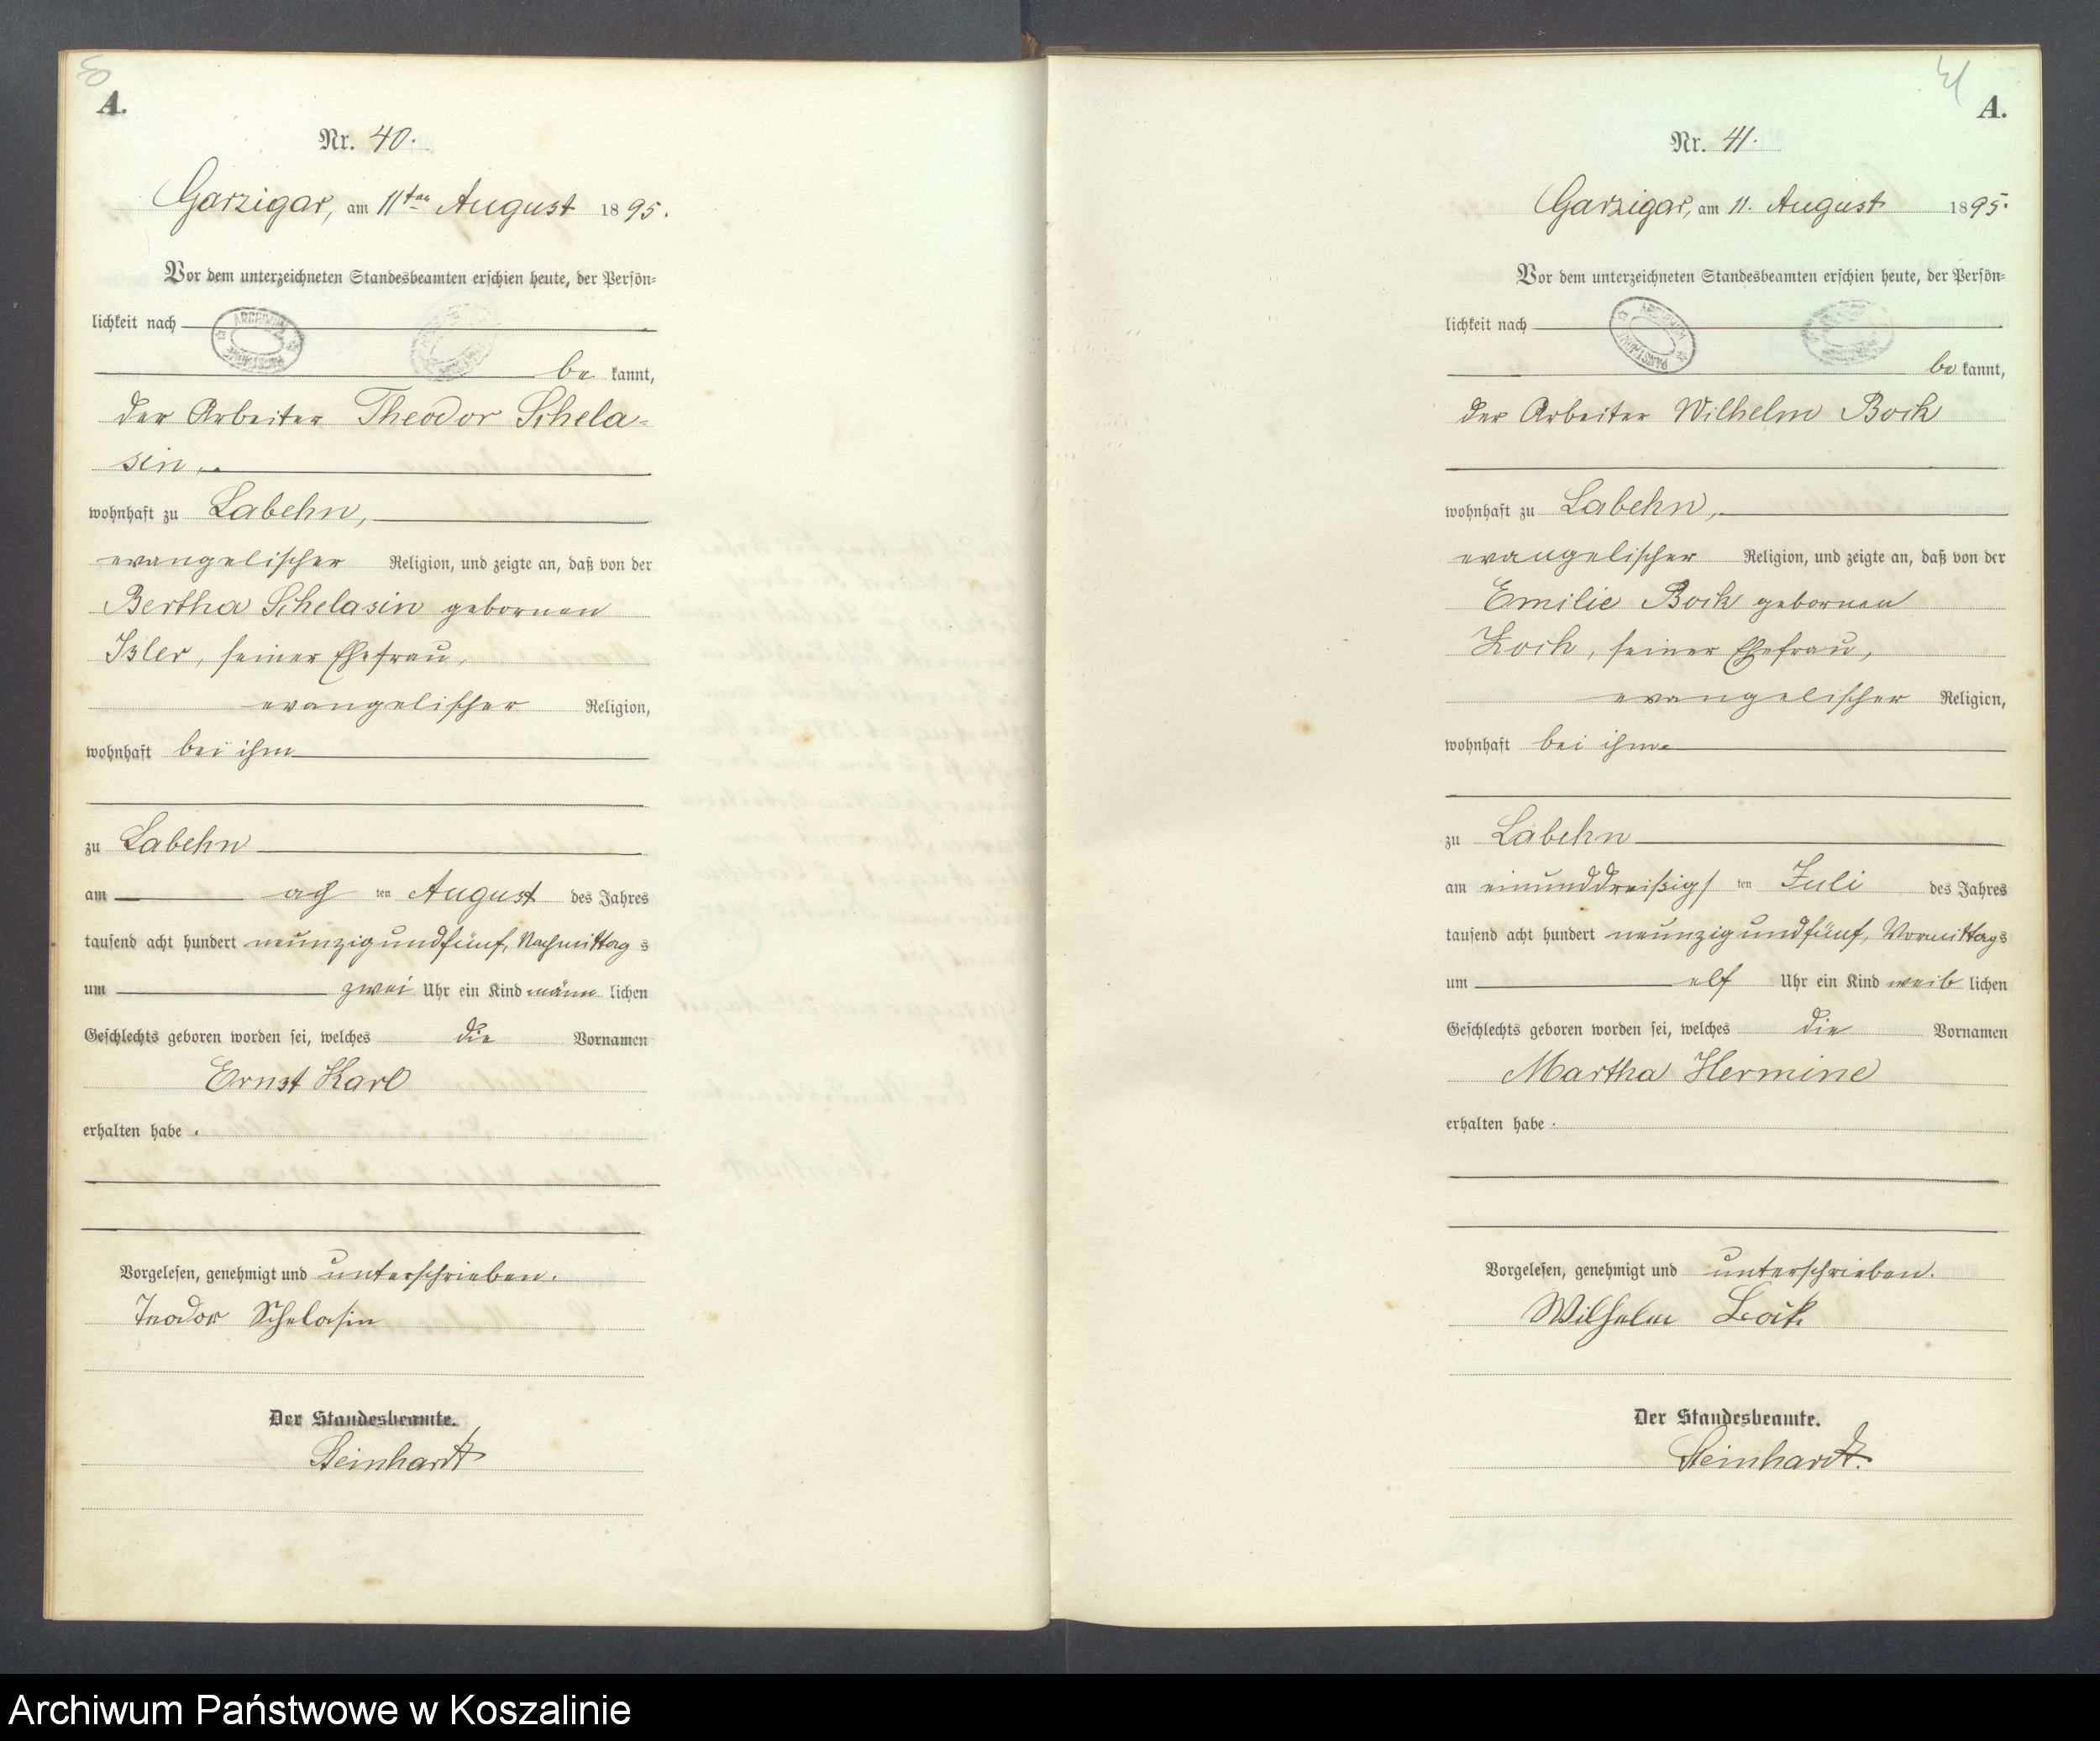 A.
Nr. 40.
Garzigar, am 11ten August 1895.
Vor dem unterzeichneten Standesbeamten erschien heute, der Persön=
lichkeit nach
be kannt,
der Arbeiter Theodor Schela=
sin,
wohnhaft zu Labehn,
evangelischer Religion, und zeigte an, daß von der
Bertha Schelasin gebornen
Isler, seiner Ehefrau,
evangelischer Religion,
wohnhaft bei ihm
zu Labehn
am ach ten August des Jahres
tausend acht hundert neunzigundfünf, Nachmittag s
um zwei Uhr ein Kind männ lichen
Geschlechts geboren worden sei, welches die Vornamen
Ernst Karl
erhalten habe.
Vorgelesen, genehmigt und unterschrieben.
Teodor Schelasin
Der Standesbeamte.
Steinhardt
41
A.
Nr. 41.
Garzigar, am 11. August 1895.
Vor dem unterzeichneten Standesbeamten erschien heute, der Persön=
lichkeit nach
be kannt,
der Arbeiter Wilhelm Bock
wohnhaft zu Labehn,
evangelischer Religion, und zeigte an, daß von der
Emilie Bock gebornen
Koch, seiner Ehefrau,
evangelischer Religion,
wohnhaft bei ihm
zu Labehn
am einunddreißigs ten Juli des Jahres
tausend acht hundert neunzigundfünf, Vormittags
um elf Uhr ein Kind weib lichen
Geschlechts geboren worden sei, welches die Vornamen
Martha Hermine
erhalten habe.
Vorgelesen, genehmigt und unterschrieben.
Wilhelm Bock
Der Standesbeamte.
Steinhardt.
Archiwum Państwowe w Koszalinie